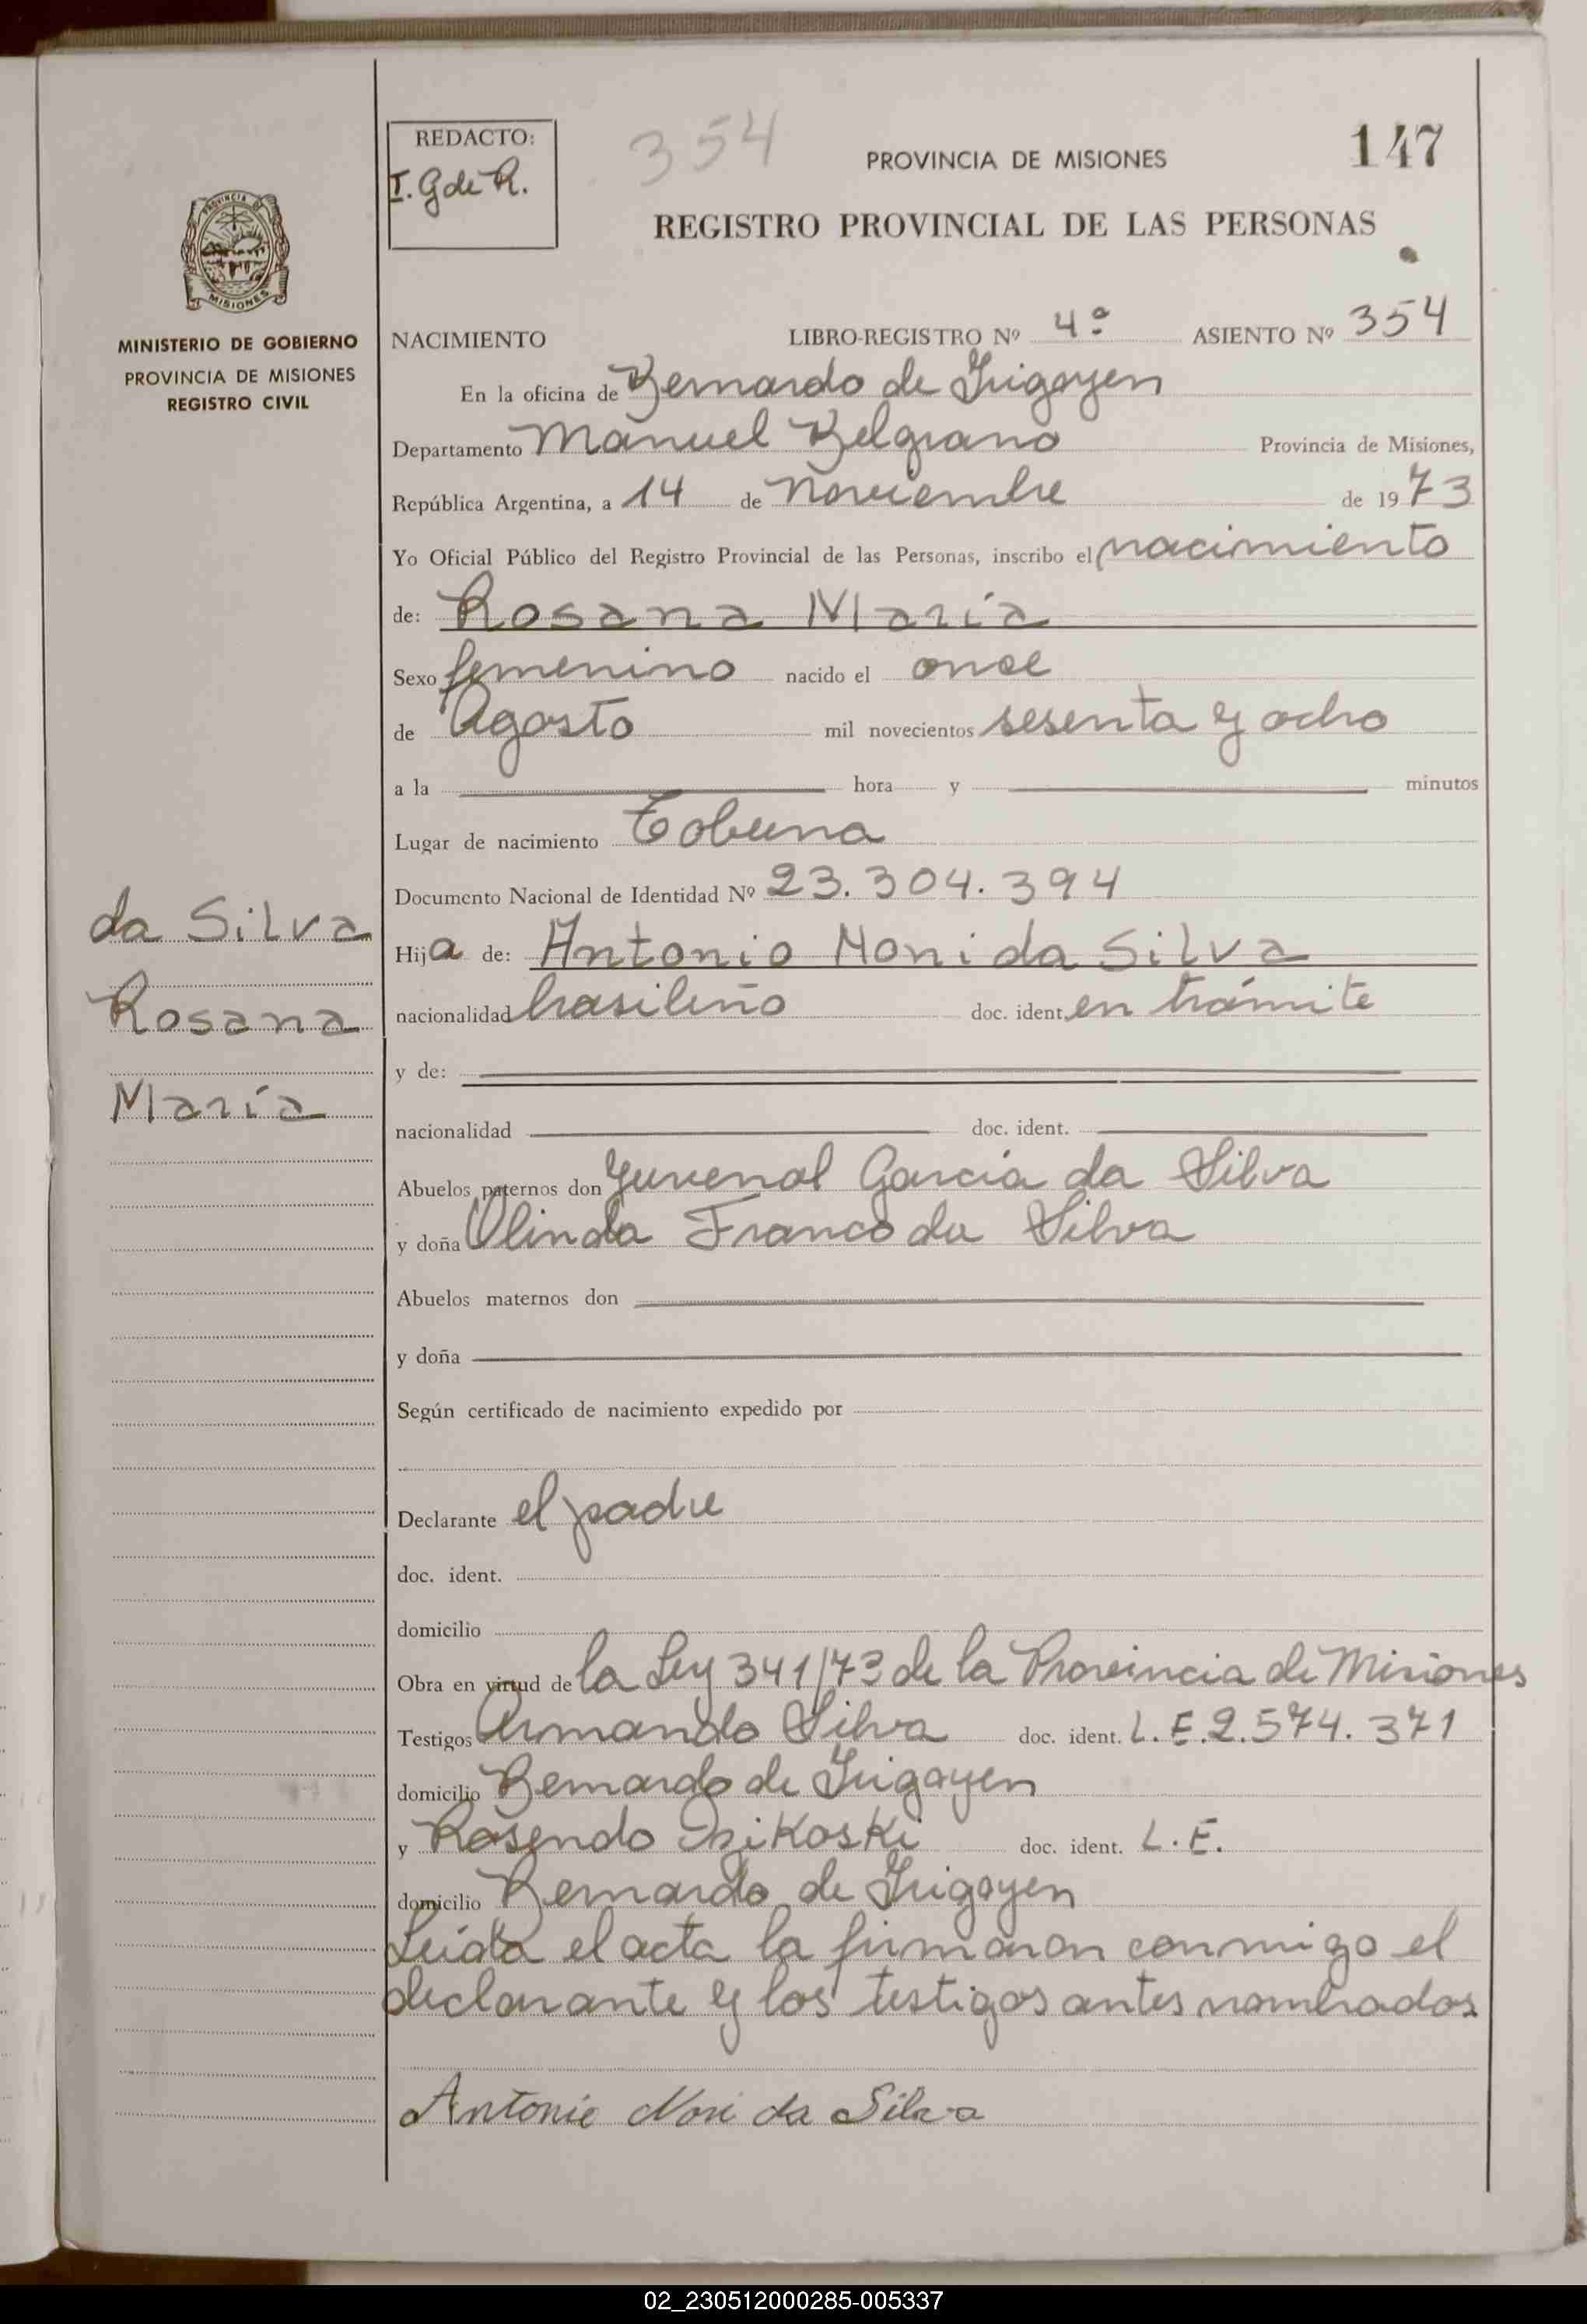 REDACTO:
I. G de R.
354
PROVINCIA DE MISIONES
147
REGISTRO PROVINCIAL DE LAS PERSONAS
PROVINCIA DE
MISIONES
MINISTERIO DE GOBIERNO
PROVINCIA DE MISIONES
REGISTRO CIVIL
NACIMIENTO LIBRO-REGISTRO Nº 4º ASIENTO Nº 354
En la oficina de Bernardo de Irigoyen
Departamento Manuel Belgrano Provincia de Misiones,
República Argentina, a 14 de noviembre de 1973
Yo Oficial Público del Registro Provincial de las Personas, inscribo el nacimiento
de: Rosana María
Sexo femenino nacido el once
de Agosto mil novecientos sesenta y ocho
a la hora y minutos
Lugar de nacimiento Tobuna
Documento Nacional de Identidad Nº 23.304.394
da Silva
Rosana
María
Hija de: Antonio Noni da Silva
nacionalidad brasileño doc. ident. en trámite
y de:
nacionalidad doc. ident.
Abuelos paternos don Yuvenal Garcia da Silva
y doña Olinda Franco da Silva
Abuelos maternos don
y doña
Según certificado de nacimiento expedido por
Declarante el padre
doc. ident.
domicilio
Obra en virtud de la Ley 341/73 de la Provincia de Misiones
Testigos Armando Silva doc. ident. L.E. 2.574.371
domicilio Bernardo de Irigoyen
y Rosendo doc. ident. L.E.
domicilio Bernardo de Irigoyen
Leída el acta la firmaron conmigo el
declarante y los testigos antes nombrados
Antonio da Silva
02_230512000285-005337